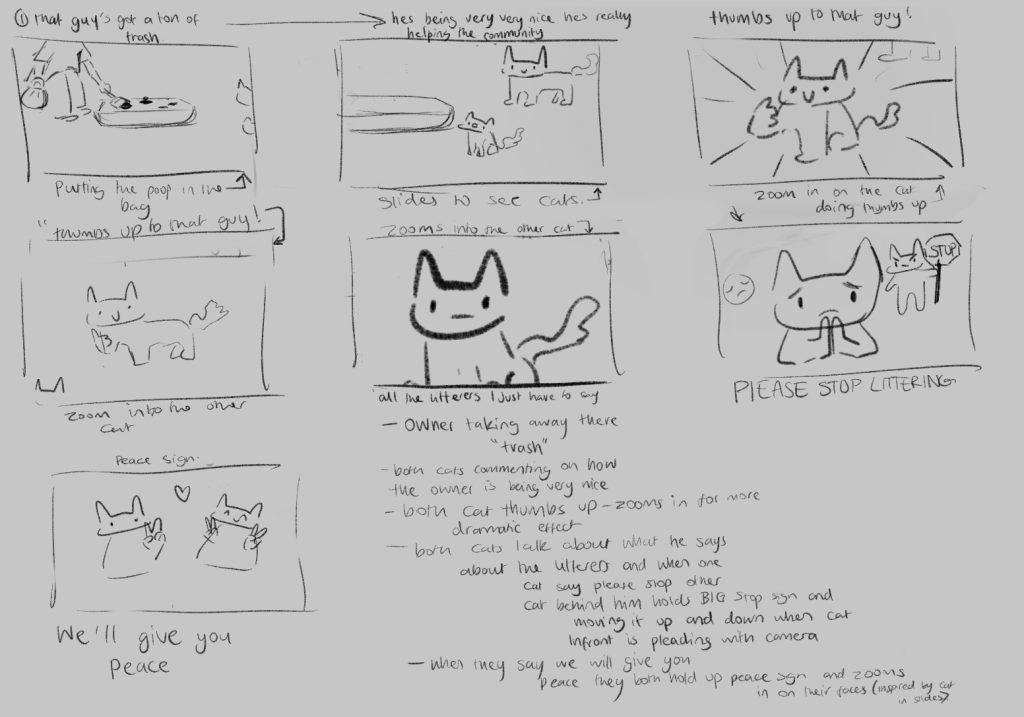 ① that guy's got a ton of
trash
hes being very very nice hes really
helping the community
thumbs up to that guy!
Putting the poop in the
bag
slides to see cats.
zoom in on the cat
doing thumbs up
"thumbs up to that guy!
zoom into the other
cat
zooms into the other cat
all the litterers I just have to say
STOP
PLEASE STOP LITTERING
Peace sign.
We'll give you
peace
- owner taking away there
"trash"
- both cats commenting on how
the owner is being very nice
- both cat thumbs up - zooms in for more
dramatic effect
- both cats talk about what he says
about the litterers and when one
cat say please stop other
cat behind him holds BIG stop sign and
moving it up and down when cat
infront is pleading with camera
- when they say we will give you
peace they both hold up peace sign and zooms
in on their faces (inspired by cat
in slides)